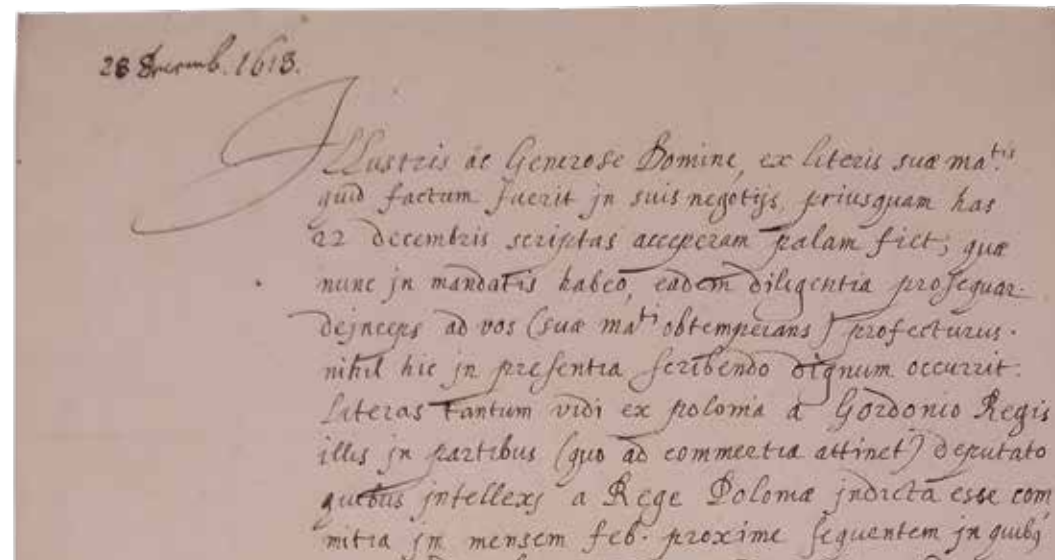 28 Decemb. 1613.
Illustris ac Generose Domine, ex literis suæ ma^tis
quid factum fuerit jn suis negotijs, priusquam has
22 decembris scriptas acceperam palam fiet; quæ
nunc jn mandatis habeo, eadem diligentia prosequar.
dejnceps ad vos (suæ ma^ti obtemperans) profecturus.
nihil hic jn presentia scribendo dignum occurrit.
Literas tantum vidi ex polonia a Gordonio Regis
illis jn partibus (quo ad commertia attinet) deputato
quibus jntellexj a Rege Poloniæ jndicta esse com
mitia jn mensem feb. proxime sequentem jn quibus